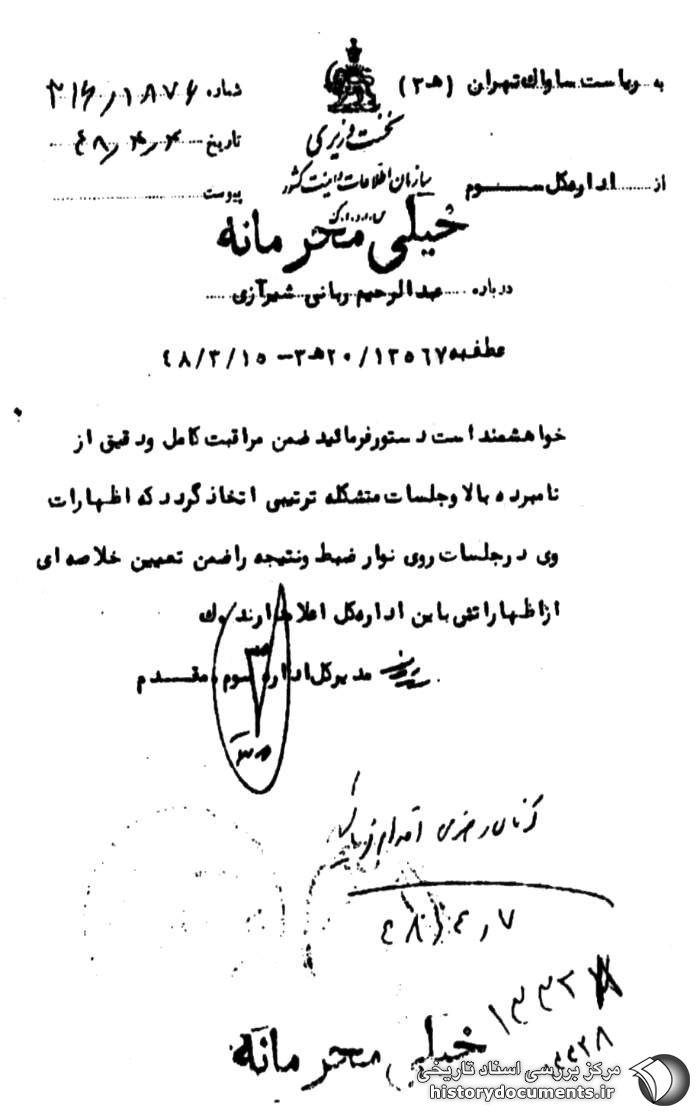 به ریاست ساواک تهران (ه‍ ۳)
شماره ۳۱۶/۱۸۷۶
نخست وزیری
تاریخ ۴۸/۴/۴
سازمان اطلاعات و امنیت کشور
از اداره کل سوم
پیوست
س.ا.و.ا.ک
خیلی محرمانه
درباره عبدالرحیم ربانی شیرازی
عطف به ۱۳۵۶۷/۲۰ه‍۳-۴۸/۳/۱۵
خواهشمند است دستور فرمائید ضمن مراقبت کامل ودقیق از
نامبرده بالا وجلسات متشکله ترتیبی اتخاذ گردد که اظهارات
وی درجلسات روی نوار ضبط ونتیجه راضمن تعیین خلاصه ای
از اظهاراتش باین اداره کل اعلام دارند
مدیرکل اداره سوم مقدم
اقدام
۴۸/۴/۷
خیلی محرمانه
مرکز بررسی اسناد تاریخی
historydocuments.ir